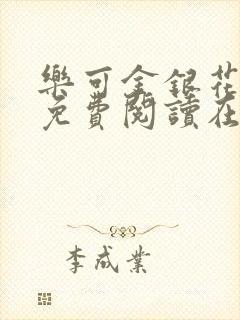 樂可金銀花
免費閱讀在
李成業